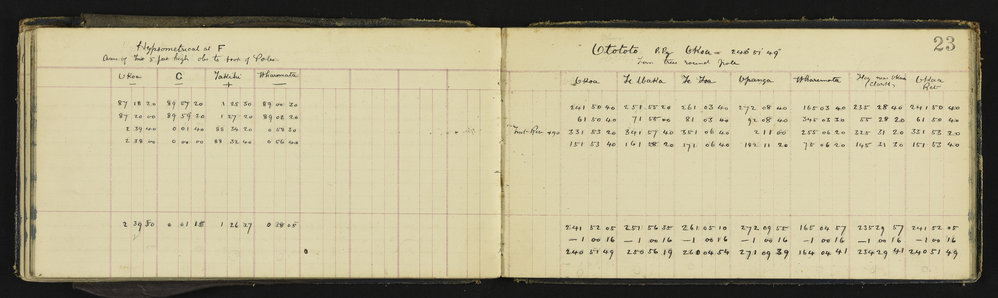 Hypsometrical at F
5 feet high obs to foot of Poles
Ukoa C Takihi Wharomata
+
87 18 20 89 57 20 1 25 30 89 00 30
87 20 00 89 59 20 1 27 20 89 02 20
2 39 40 0 01 40 88 34 20 0 58 30
2 38 00 0 00 00 88 32 40 0 56 40
2 39 50 0 01 15 1 26 27 0 58 05
0
23
Otototo R.By Ukoa = 240 51 49
Iron tree round pole
Ukoa Te Waka Te Toa Opanga Wharemata Flag near Ukoa (Clarke) Ukoa Rev
241 50 40 251 55 20 261 03 40 272 08 40 165 03 40 235 28 40 241 50 40
61 50 40 71 55 00 81 03 40 92 08 40 345 03 30 55 28 20 61 50 40
Inst-Rev +90 331 53 20 341 57 40 351 06 40 2 11 00 255 06 20 325 31 20 331 53 20
151 53 40 161 58 20 171 06 40 182 11 20 75 06 20 145 31 30 151 53 40
241 52 05 251 56 35 261 05 10 272 09 55 165 04 57 235 29 57 241 52 05
-1 00 16 -1 00 16 -1 00 16 -1 00 16 -1 00 16 -1 00 16 -1 00 16
240 51 49 250 56 19 260 04 54 271 09 39 164 04 41 234 29 41 240 51 49